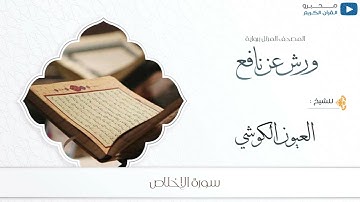 محبرو
القرآن الكريم
المصحف المرتل برواية
ورش عن نافع
للشيخ :
العيون الكوشي
سورة الإخلاص